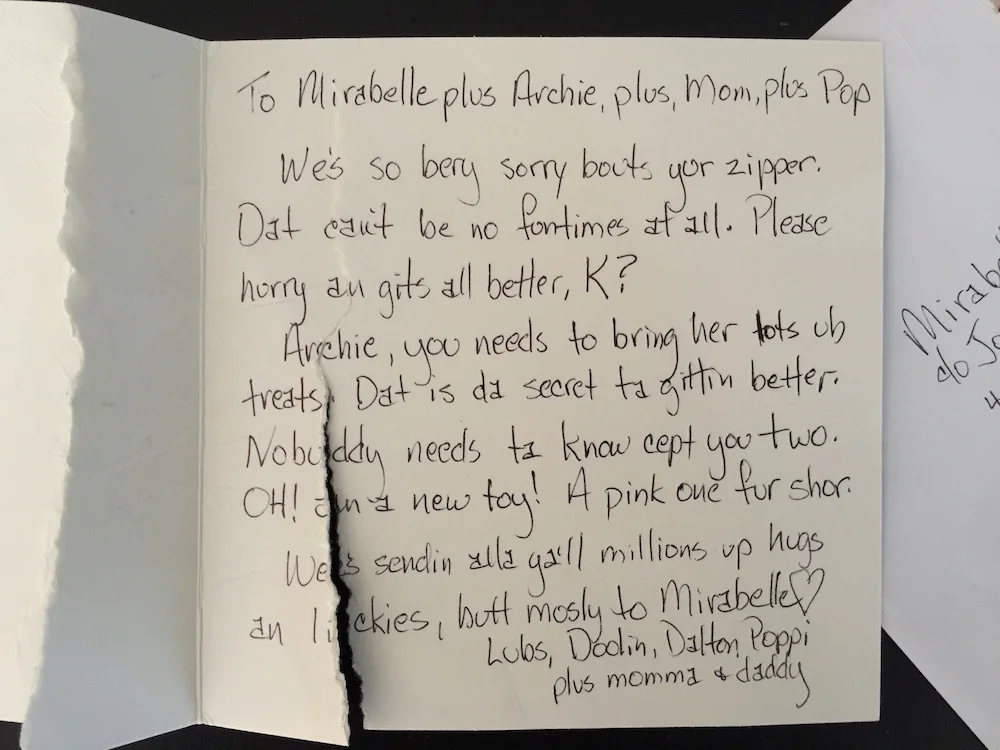 To Mirabelle plus Archie, plus, Mom, plus Pop
We's so bery sorry bouts yor zipper.
Dat can't be no funtimes at all. Please
hurry an gits all better, K?
Archie, you needs to bring her lots ub
treats. Dat is da secret ta gittin better.
Nobuddy needs ta know cept you two.
OH! an a new toy! A pink one fur shor.
We's sendin alla ya'll millions up hugs
an lickies, butt mosly to Mirabelle♡
Lubs, Doolin, Dalton, Poppi
plus momma & daddy
Mirabe